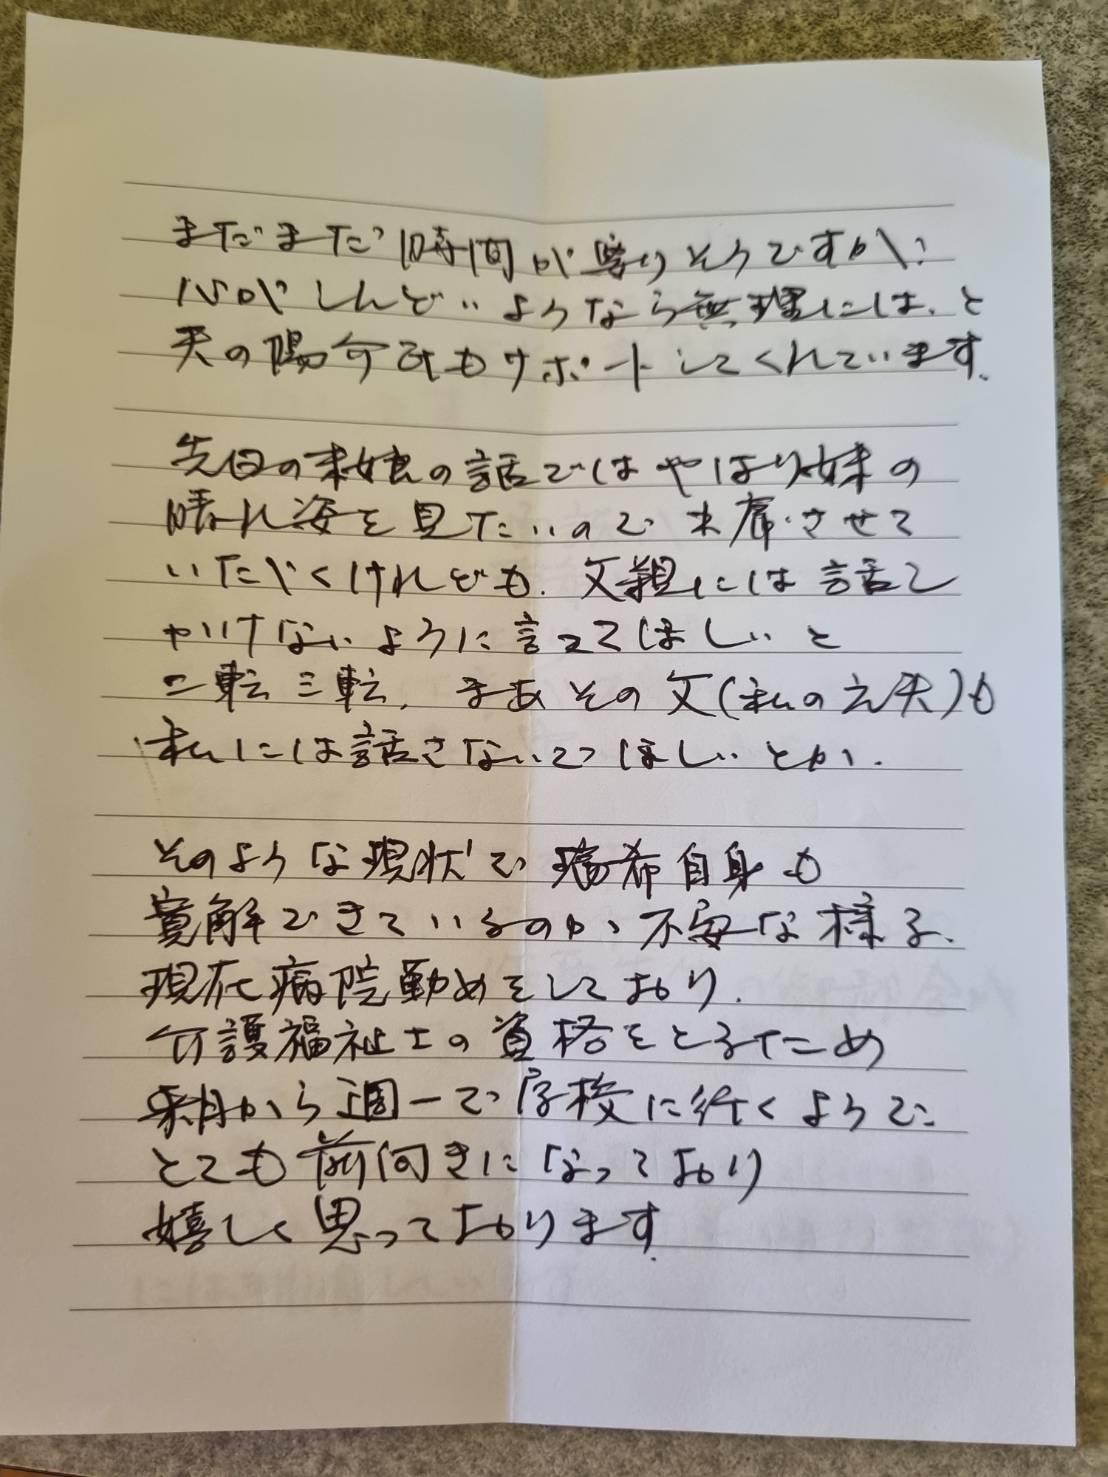 まだまだ時間が掛りそうですが、
心がしんどいようなら無理には、と
夫の陽介もサポートしてくれています。
先日の末娘の話ではやはり妹の
晴れ姿を見たいので出席させて
いただくけれども、父親には話し
かけないように言ってほしいと
二転三転、まあその父(私の元夫)も
私には話さないでほしいとか、
そのような現状で瑞希自身も
寛解できているのか、不安な様子、
現在病院勤めをしており、
介護福祉士の資格をとるため
来月から週一で学校に行くようで
とても前向きになっており
嬉しく思っております。